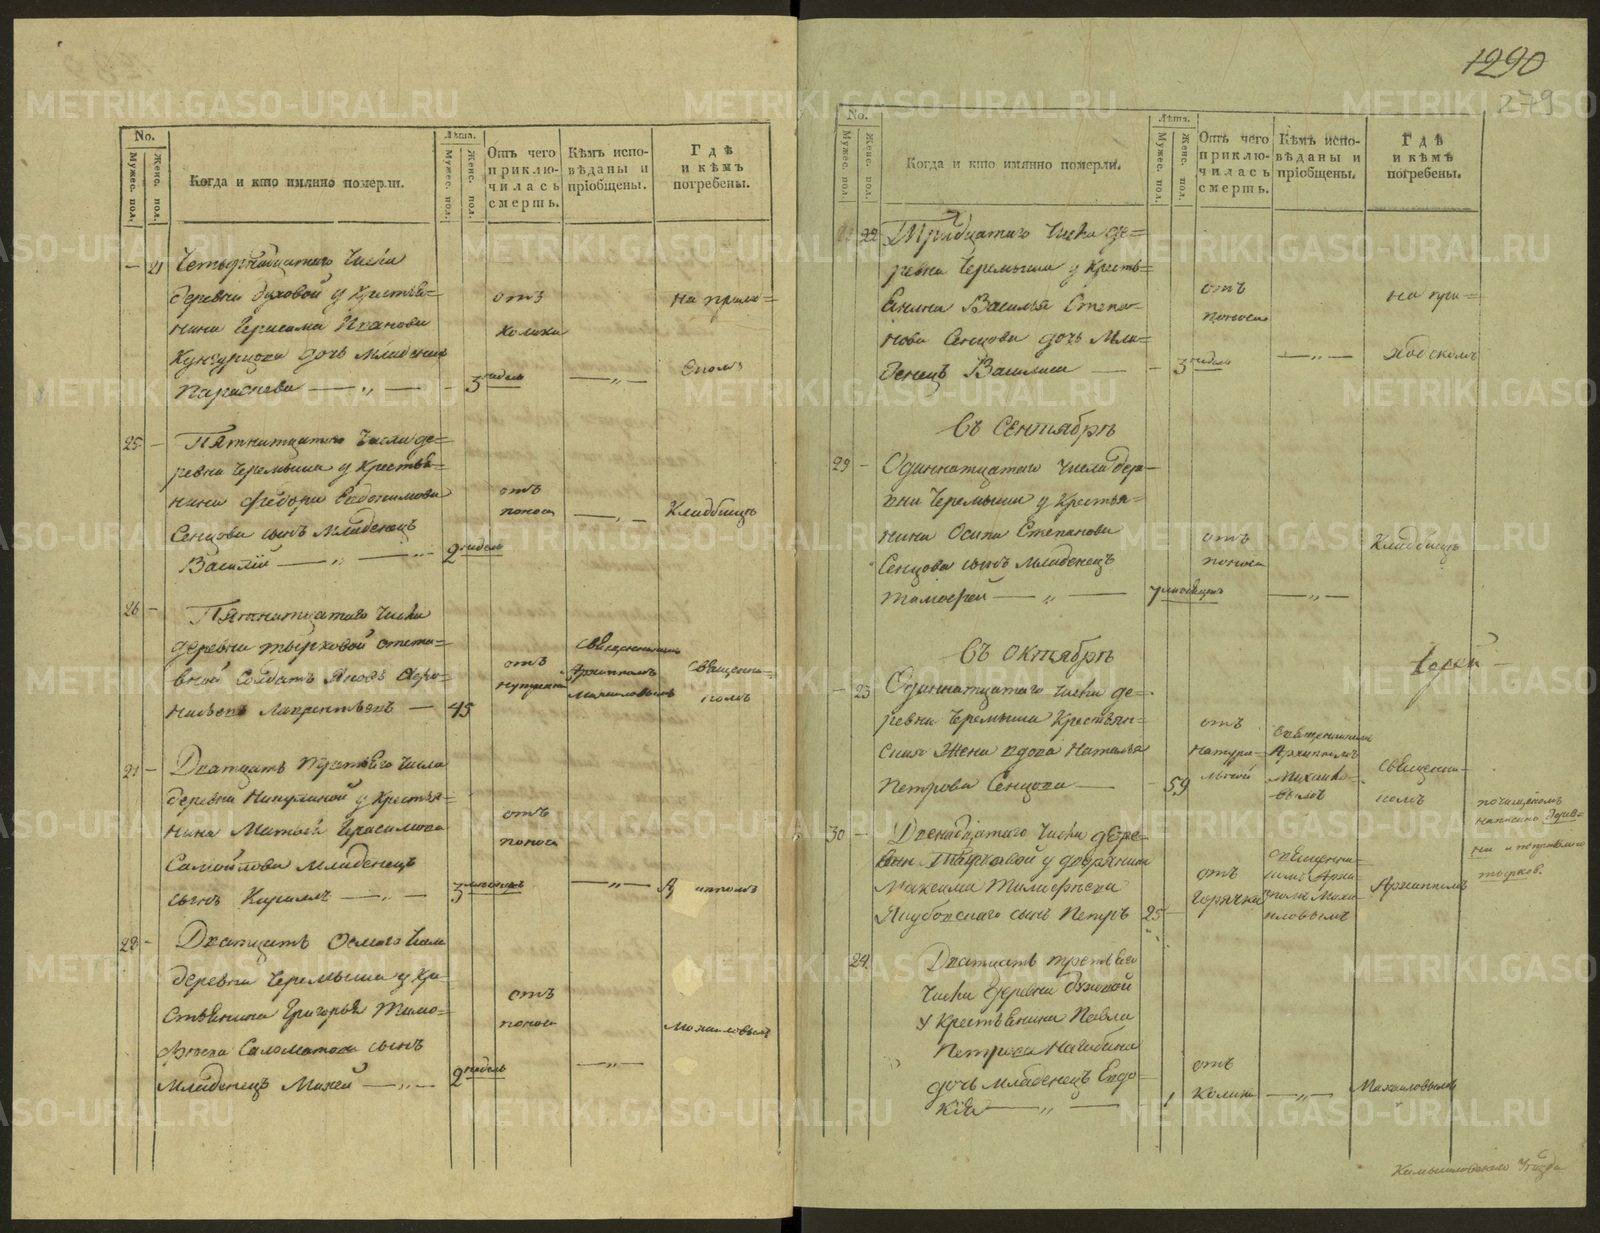 No.
Мужес. пол.
Женс. пол.
Когда и кто имянно померли.
Лѣта.
Мужес. пол.
Женс. пол.
Отъ чего приклю-
чилась
смерть.
Кѣмъ испо-
вѣданы и
пріобщены.
Гдѣ
и кѣмъ
погребены.
— 21 Четырнадцатаго числа
деревни духовой у крестья=
нина Герасима Иванова
Кунгурцова дочь младенецъ
Параскева — „ — — 3 недель
отъ
колики
— „ —
на прихо=
Скомъ
25 — Пятнатцатого числа де=
ревни Черемыша у крестья=
нина Федора Евдокимова
Сенцова сынъ младенецъ
Василій — „ — 2 недель
отъ
поноса
— „ —
Кладбищѣ
26 — Пятнатцатаго числа
деревни тырковой отста=
вной солдатъ Яковъ
Лаврентьевъ — 45
отъ
священникомъ
Архиппомъ
Михаиловымъ
священни=
комъ
Дватцать третьяго числа
деревни Никулиной у крестья=
нина Матвея Герасимова
Самойлова младенецъ
сынъ Кириллъ — „ — 3 месяцовъ
отъ
поноса
— „ —
Дватцать осмаго числа
деревни Черемыша у кре=
стьянина Григорья Тимо=
фѣева Саломатова сынъ
младенецъ Михей — „ — 2 недель
отъ
поноса
— „ —
Михаиловымъ
1290
279
No.
Мужес. пол.
Женс. пол.
Когда и кто имянно померли.
Лѣта.
Мужес. пол.
Женс. пол.
Отъ чего
приклю-
чилась
смерть.
Кѣмъ испо-
вѣданы и
пріобщены.
Гдѣ
и кѣмъ
погребены.
22 Тридцатаго числа де=
ревни Черемыша у кресть=
янина Василья Степа=
нова Сенцова дочь мла=
денецъ Василиса — — 3 недель
отъ
поноса
— „ —
на при=
ходскомъ
Въ Сентябрѣ
29 — Одиннатцатаго числа дере=
вни Черемыша у крестья=
нина Осипа Степанова
Сенцова сынъ младенецъ
Тимофей — „ — 7 месяцовъ
отъ
поноса
— „ —
Кладбищѣ
Въ Октябрѣ
— 23 Одиннатцатаго числа де=
ревни Черемыша крестьян=
ская жена вдова Наталья
Петрова Сенцова — — 59
отъ
натура=
льной
священникомъ
Архиппомъ
Михаило=
вымъ
священни=
комъ
30 — Двенадцатаго числа дере=
вни Тырковой у дворянина
Максима Тимофѣева
Якубовскаго сынъ Петръ 25 —
отъ
горячки
священни=
комъ Архи=
ппомъ Миха=
иловымъ
Архиппомъ
по чищеномъ
написано дерев=
ни и поправлено
тырков.
24 Дватцать третьяго
числа деревни духовой
у крестьянина Павла
Петрова Нагибина
дочь младенецъ Евдо=
кія — „ — 1
отъ
колики
— „ —
Михаиловымъ
Камышловскаго Уѣзда